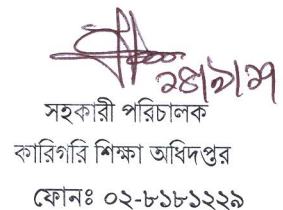 সহকারী পরিচালক
কারিগরি শিক্ষা অধিদপ্তর
ফোনঃ ০২-৮১৮১২২৯